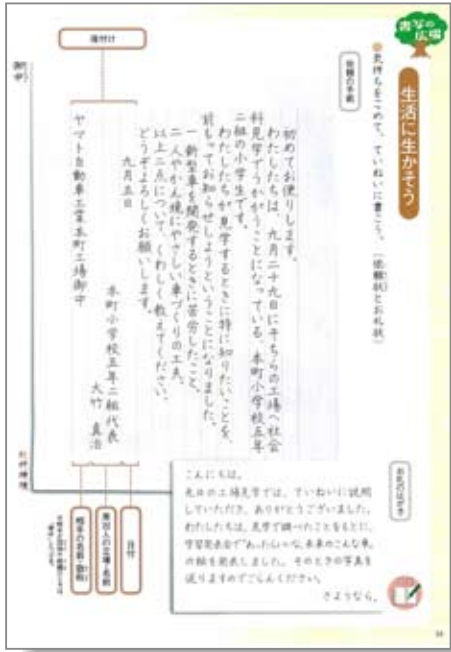 書写の広場
生活に生かそう
気持ちをこめて、ていねいに書こう。(依頼状とお礼状)
依頼の手紙
初めてお便りします。
わたしたちは、九月二十九日にそちらの工場へ社会
科見学でうかがうことになっている、本町小学校五年
二組の小学生です。
わたしたちが見学するときに特に知りたいことを、
前もってお知らせしようということになりました。
一 新型車を開発するときに苦労したこと。
二 人やかん境にやさしい車づくりの工夫。
以上二点について、くわしく教えてください。
どうぞよろしくお願いします。
九月五日
本町小学校五年二組代表
大竹 真治
ヤマト自動車工業本町工場御中
後付け
御中
日付
差出人の立場・名前
相手の名前・敬称
お礼のはがき
こんにちは。
先日の工場見学では、ていねいに説明
していただき、ありがとうございました。
わたしたちは、見学で調べたことをもとに、
学習発表会で「あったらいいな、未来のこんな車」
の絵を発表しました。そのときの写真を
送りますのでごらんください。
さようなら。